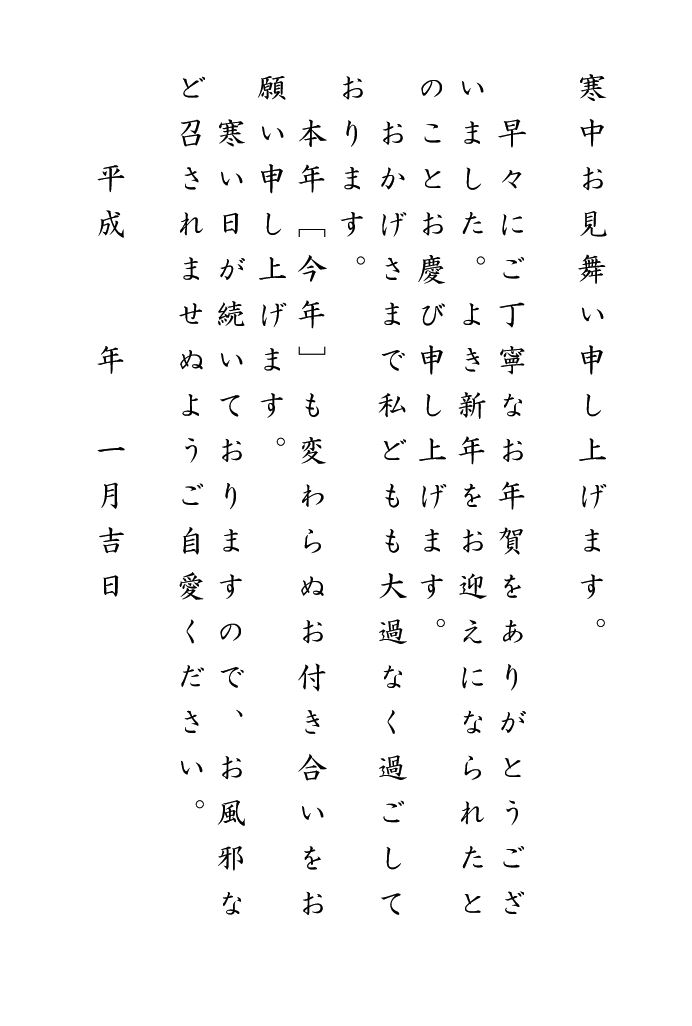 寒中お見舞い申し上げます。
早々にご丁寧なお年賀をありがとうござ
いました。よき新年をお迎えになられたと
のこととお慶び申し上げます。
おかげさまで私どもも大過なく過ごして
おります。
本年［今年］も変わらぬお付き合いをお
願い申し上げます。
寒い日が続いておりますので、お風邪な
ど召されませぬようご自愛ください。
平成　　年　一月吉日